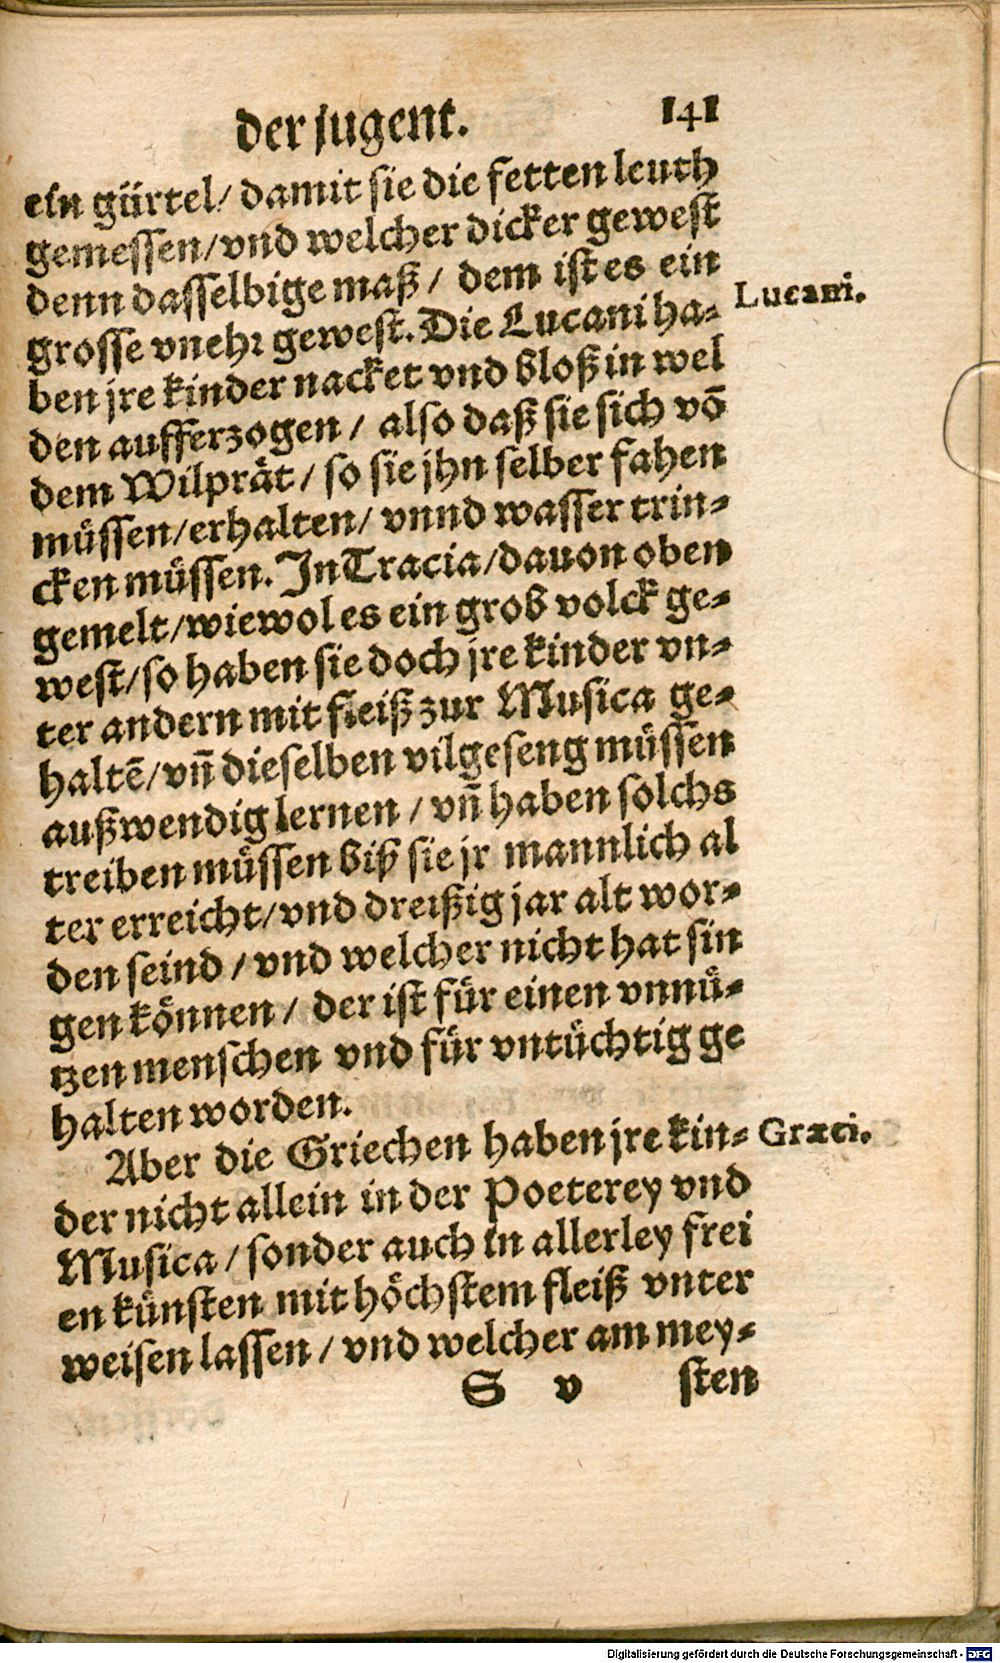 der jugent. 141
ein gürtel/ damit sie die fetten leuth
gemessen/vnd welcher dicker gewest
denn dasselbige maß/ dem ist es ein
grosse vnehr gewest. Die Lucani ha-
Lucani.
ben jre kinder nacket vnd bloß in wel
den aufferzogen/ also daß sie sich võ
dem Wilprät/ so sie jhn selber fahen
müssen/erhalten/ vnnd wasser trin-
cken müssen. In Tracia/dauon oben
gemelt/wiewol es ein grob volck ge-
west/so haben sie doch jre kinder vn-
ter andern mit fleiß zur Musica ge-
haltẽ/vñ dieselben vil geseng müssen
außwendig lernen/ vñ haben solchs
treiben müssen biß sie jr mannlich al
ter erreicht/vnd dreißig jar alt wor-
den seind/ vnd welcher nicht hat sin
gen können/ der ist für einen vnnü-
tzen menschen vnd für vntüchtig ge
halten worden.
Aber die Griechen haben jre kin-
Græci.
der nicht allein in der Poeterey vnd
Musica/ sonder auch in allerley frei
en künsten mit höchstem fleiß vnter
weisen lassen/ vnd welcher am mey-
S v sten
Digitalisierung gefördert durch die Deutsche Forschungsgemeinschaft - DFG